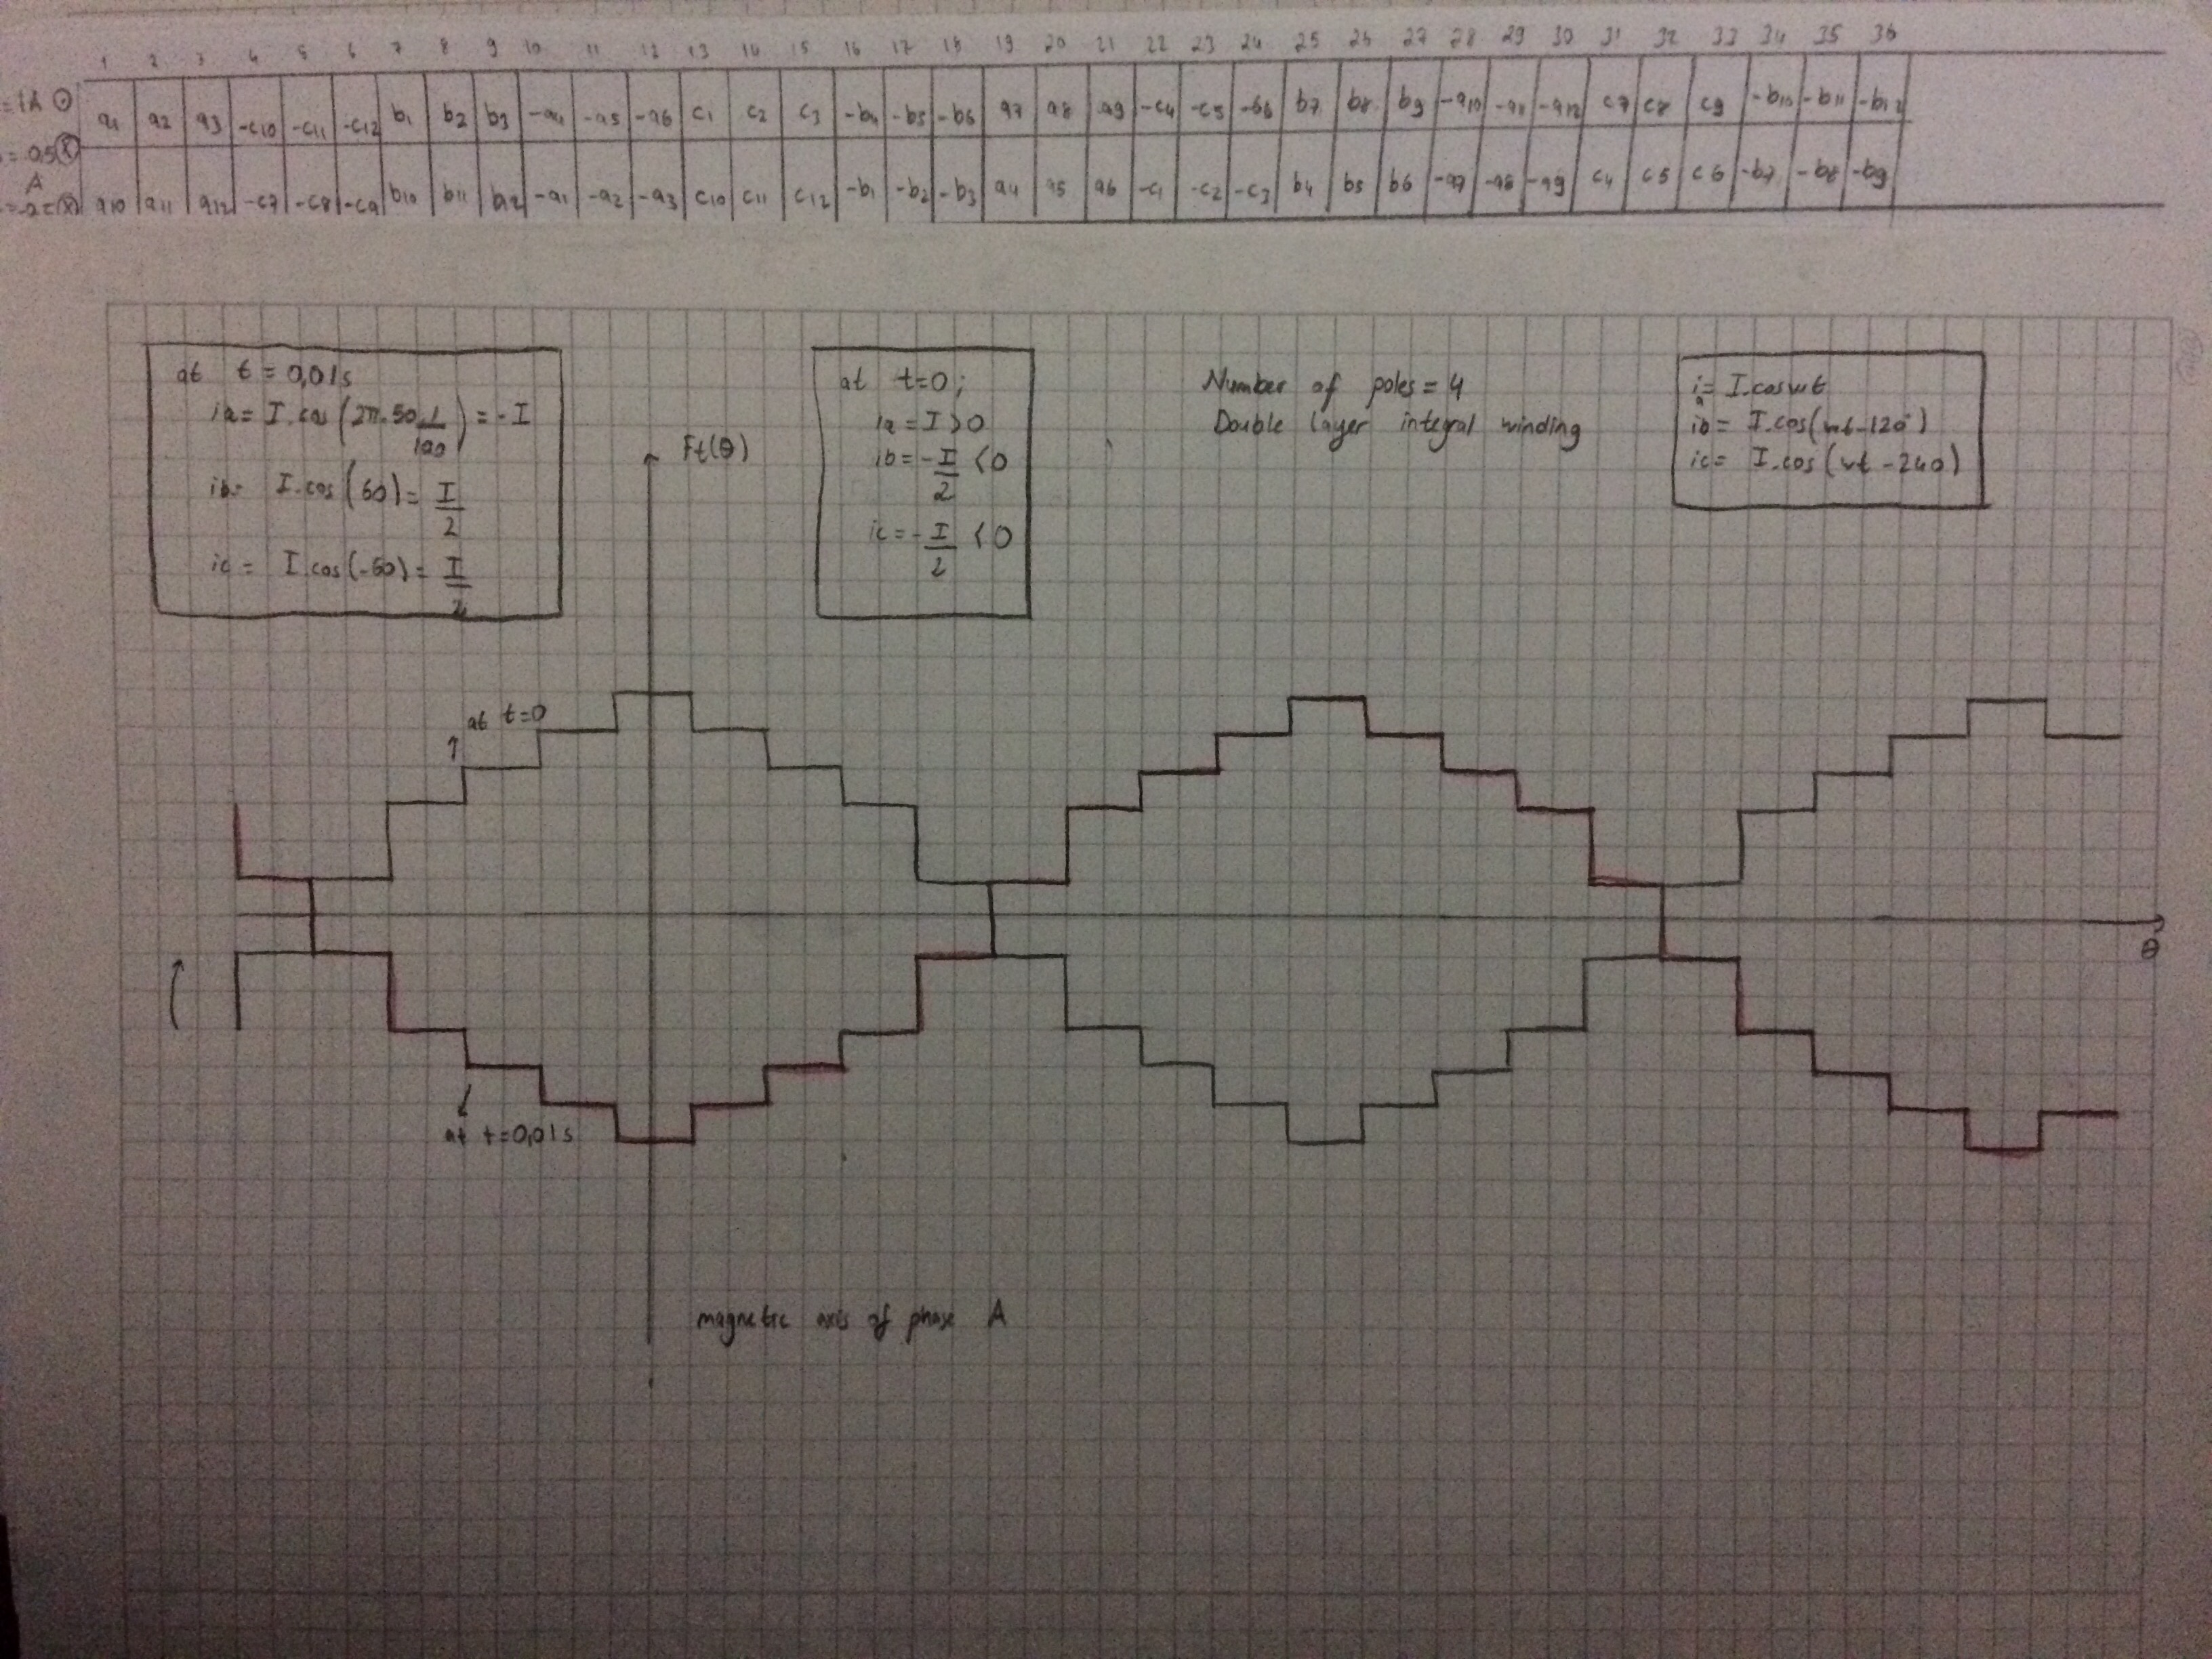 1 2 3 4 5 6 7 8 9 10 11 12 13 14 15 16 17 18 19 20 21 22 23 24 25 26 27 28 29 30 31 32 33 34 35 36
=1A ⊙ a1 a2 a3 -c10 -c11 -c12 b1 b2 b3 -a4 -a5 -a6 c1 c2 c3 -b4 -b5 -b6 a7 a8 a9 -c4 -c5 -b6 b7 b8 b9 -a10 -a11 -a12 c7 c8 c9 -b10 -b11 -b12
= 0,5 ⊗
A
a10 a11 a12 -c7 -c8 -c9 b10 b11 b12 -a1 -a2 -a3 c10 c11 c12 -b1 -b2 -b3 a4 a5 a6 -c1 -c2 -c3 b4 b5 b6 -a7 -a8 -a9 c4 c5 c6 -b7 -b8 -b9
at t = 0,01s
ia = I.cos(2π.50.1/100) = -I
ib = I.cos(60) = I/2
ic = I.cos(-60) = I/2
Ft(θ)
at t=0;
ia = I>0
ib = -I/2 <0
ic = -I/2 <0
Number of poles = 4
Double layer integral winding
ia = I.coswt
ib = I.cos(wt-120°)
ic = I.cos(wt-240)
at t=0
θ
at t=0,01s
magnetic axis of phase A